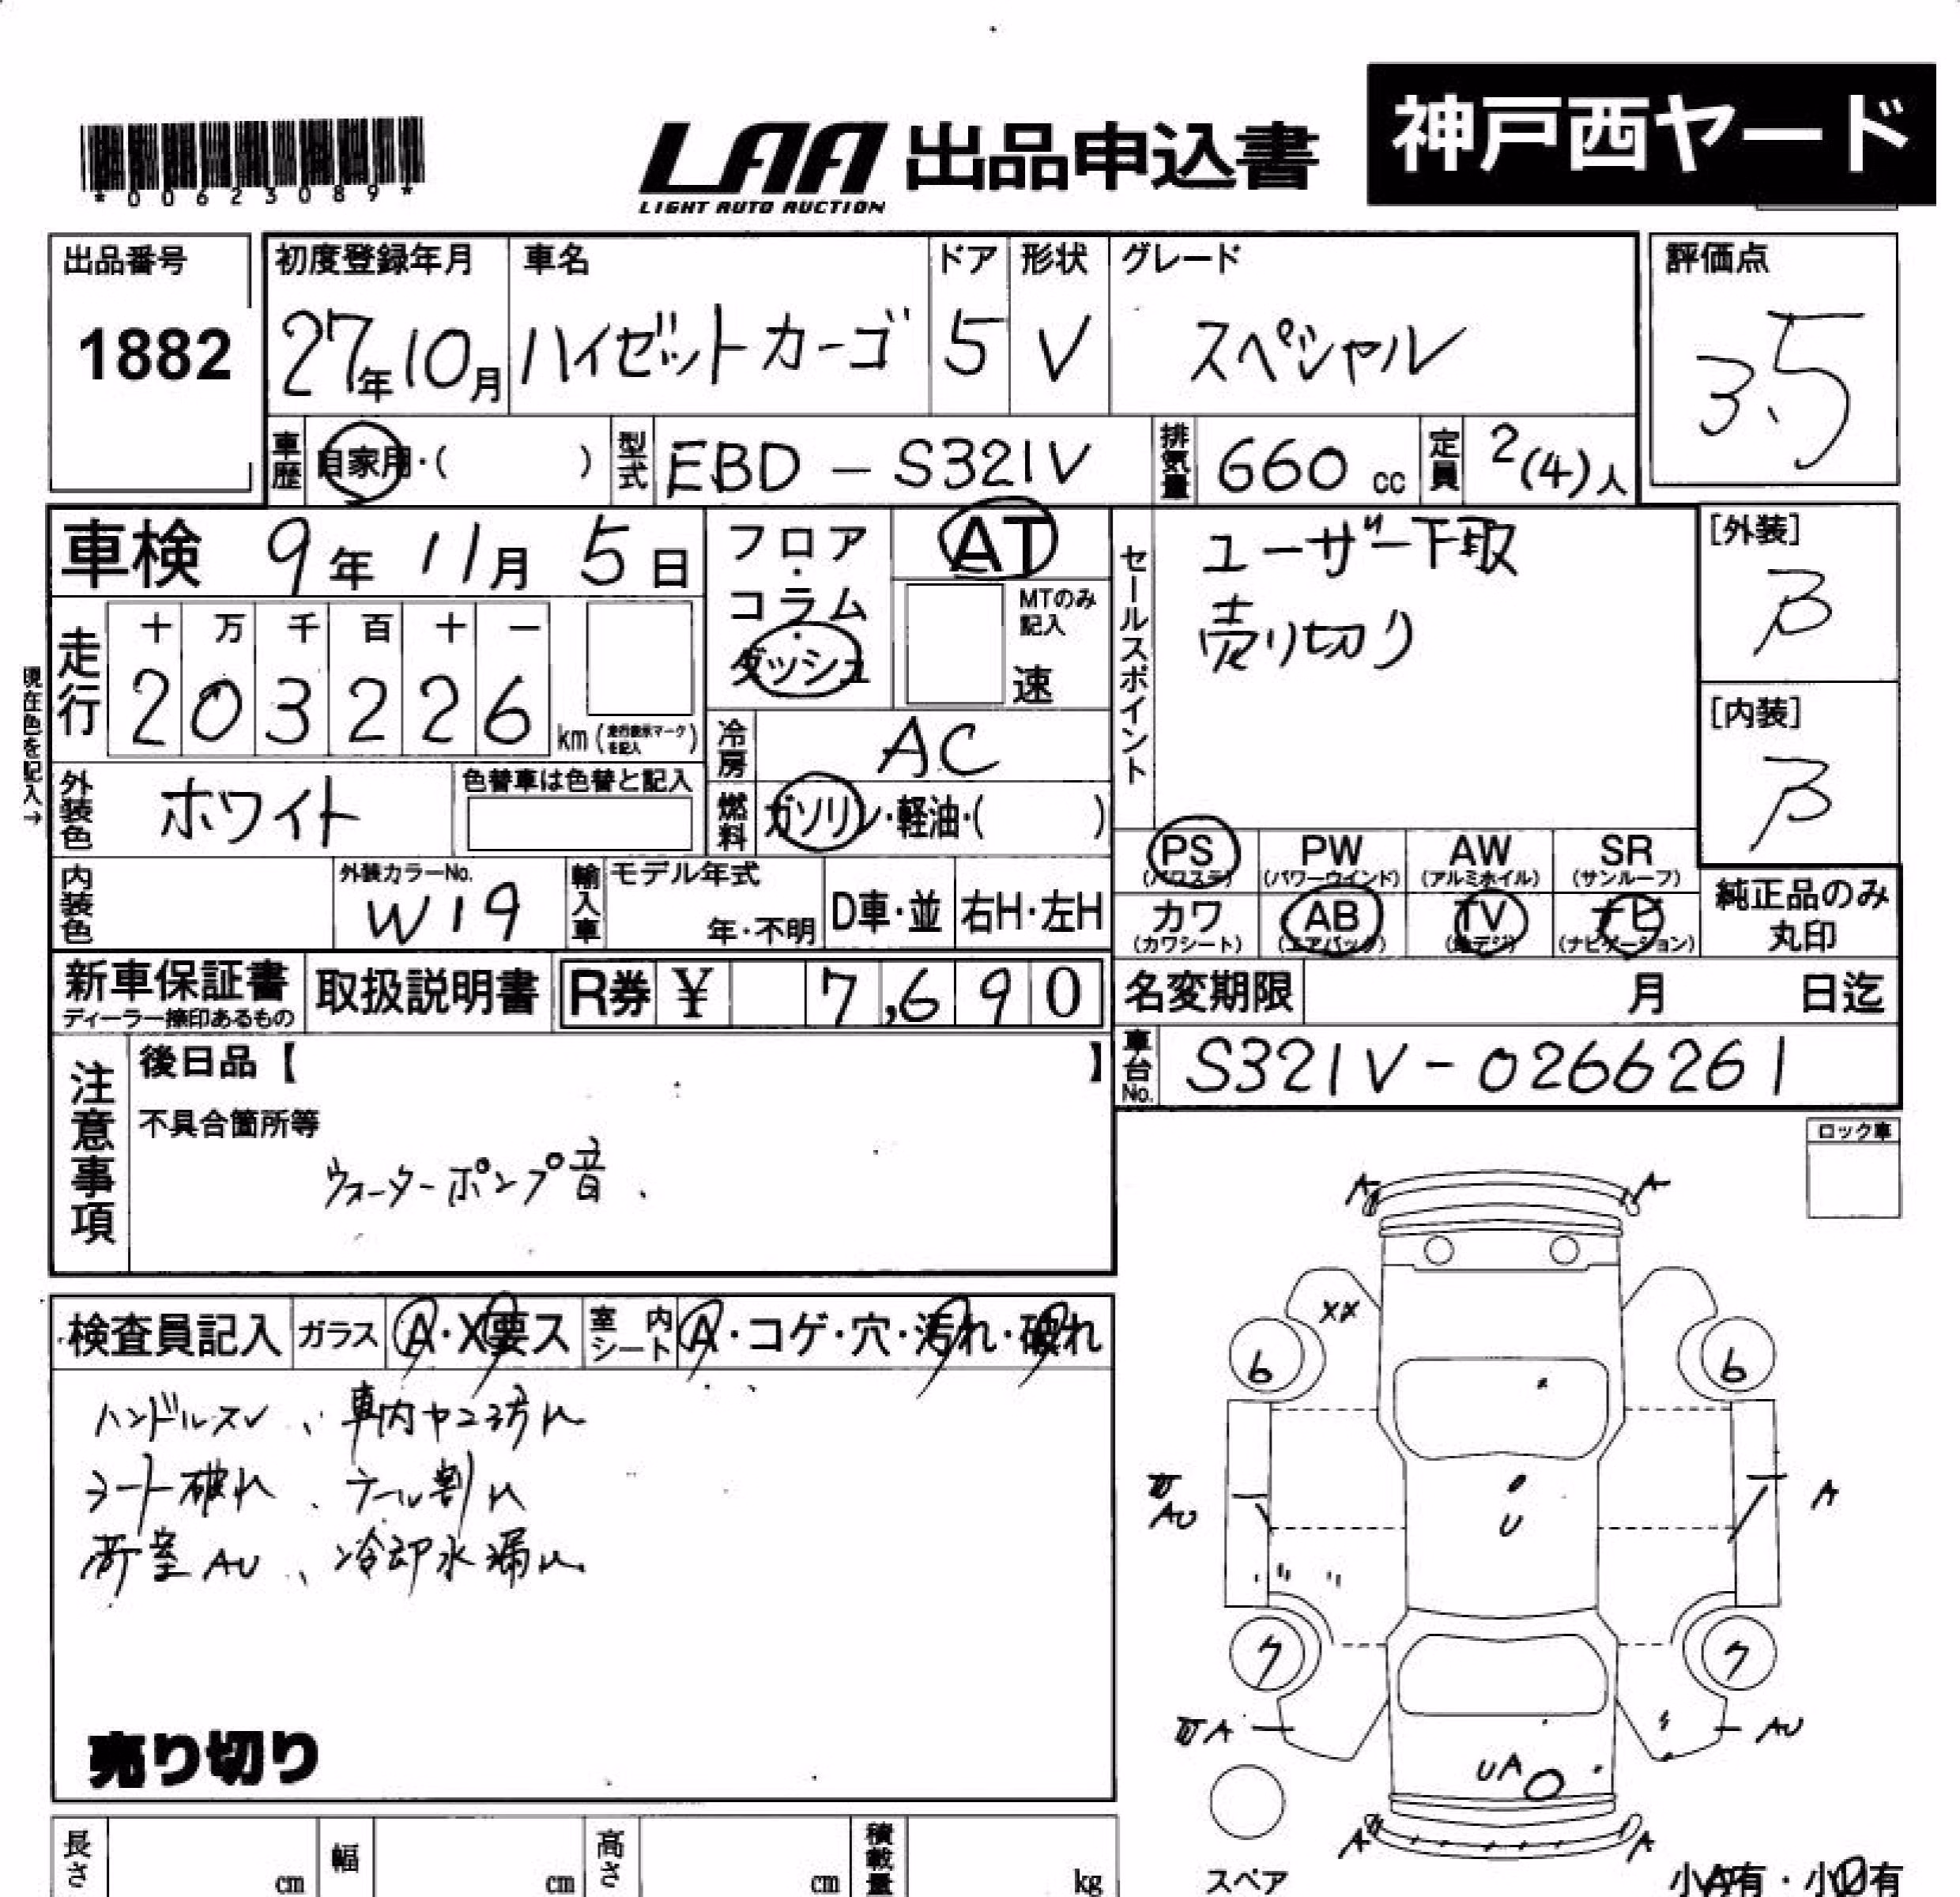 *00623089*
LAA 出品申込書
LIGHT AUTO AUCTION
神戸西ヤード
出品番号
1882
初度登録年月
27年10月
車名
ハイゼットカーゴ
ドア
5
形状
V
グレード
スペシャル
評価点
3.5
車歴
自家用・( )
型式
EBD-S321V
排気量
660cc
定員
2(4)人
車検 9年 11月 5日
フロア・コラム・ダッシュ
AT
MTのみ記入
速
セールスポイント
ユーザー下取
売り切り
[外装]
B
[内装]
B
現在色を記入→
走行
十 万 千 百 十 一
2 0 3 2 2 6
km(走行表示マークを記入)
冷房
AC
外装色
ホワイト
色替車は色替と記入
燃料
ガソリン・軽油・( )
PS
(パワステ)
PW
(パワーウインド)
AW
(アルミホイル)
SR
(サンルーフ)
カワ
(カワシート)
AB
(エアバック)
TV
(地デジ)
ナビ
(ナビゲーション)
純正品のみ丸印
内装色
外装カラーNo.
W19
輸入車
モデル年式
年・不明
D車・並
右H・左H
新車保証書
ディーラー捺印あるもの
取扱説明書
R券 ¥ 7,690
名変期限 月 日迄
車台No.
S321V-0266261
注意事項
後日品【 】
不具合箇所等
ウォーターポンプ音.
ロック車
検査員記入
ガラス
A・X要ス
室内シート
A・コゲ・穴・汚れ・破れ
ハンドルスレ、車内ヤニ汚れ
シート破れ、テール割れ
荷室AU、冷却水漏れ
売り切り
A A
XX
6 6
AU
A
U
ク ク
A
AU
UA
A A
スペア
小A有・小U有
長さ cm
幅 cm
高さ cm
積載量 kg